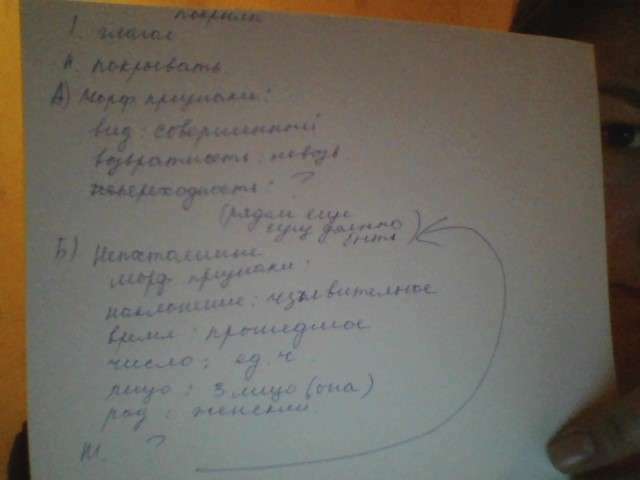 покрыла
I. глагол
II. покрывать
А) Морф признаки:
вид: совершенный
возвратность: невозв
переходность: ?
(рядом еще
сущ должно
быть)
Б) Непостоянные
морф признаки:
наклонение: изъявительное
время: прошедшее
число: ед. ч
лицо: 3 лицо (она)
род: женский
III. ?